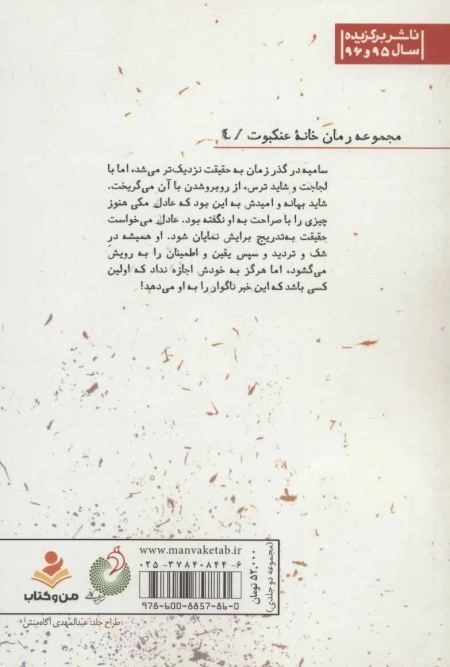 ناشر برگزیده
سال ۹۵ و ۹۶
مجموعه رمان خانهٔ عنکبوت / ٤
سامیه در گذر زمان به حقیقت نزدیک‌تر می‌شد، اما با
لجاجت و شاید ترس، از روبروشدن با آن می‌گریخت.
شاید بهانه و امیدش به این بود که عادل مکی هنوز
چیزی را با صراحت به او نگفته بود. عادل می‌خواست
حقیقت به‌تدریج برایش نمایان شود. او همیشه در
شک و تردید و سپس یقین و اطمینان را به رویش
می‌گشود، اما هرگز به خودش اجازه نداد که اولین
کسی باشد که این خبر ناگوار را به او می‌دهد!
www.manvaketab.ir
۰۲۵-۳۷۸۴۰۸۴۴-۶
978-600-8857-86-0
۵۲,۰۰۰ تومان
(مجموعه دو جلدی)
من و کتاب
طراح جلد: عبدالمهدی آگاه‌منش